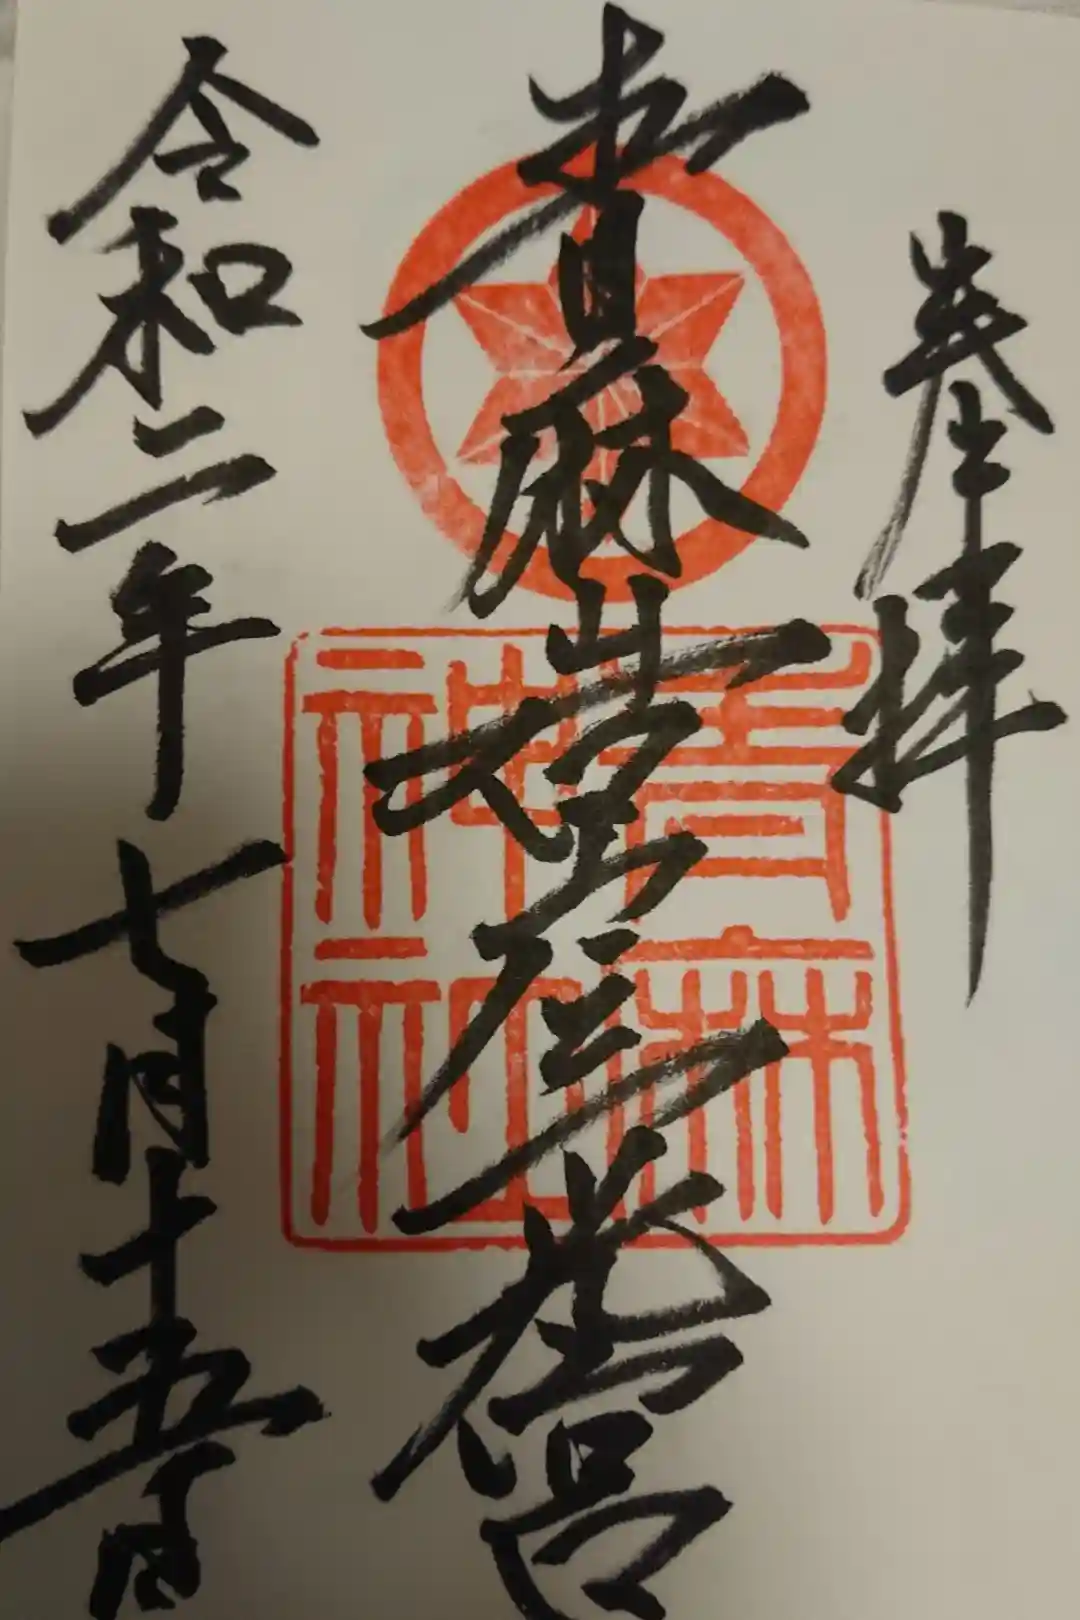 奉拝
青麻岩戸三光宮
青麻
神社
令和二年七月十五日